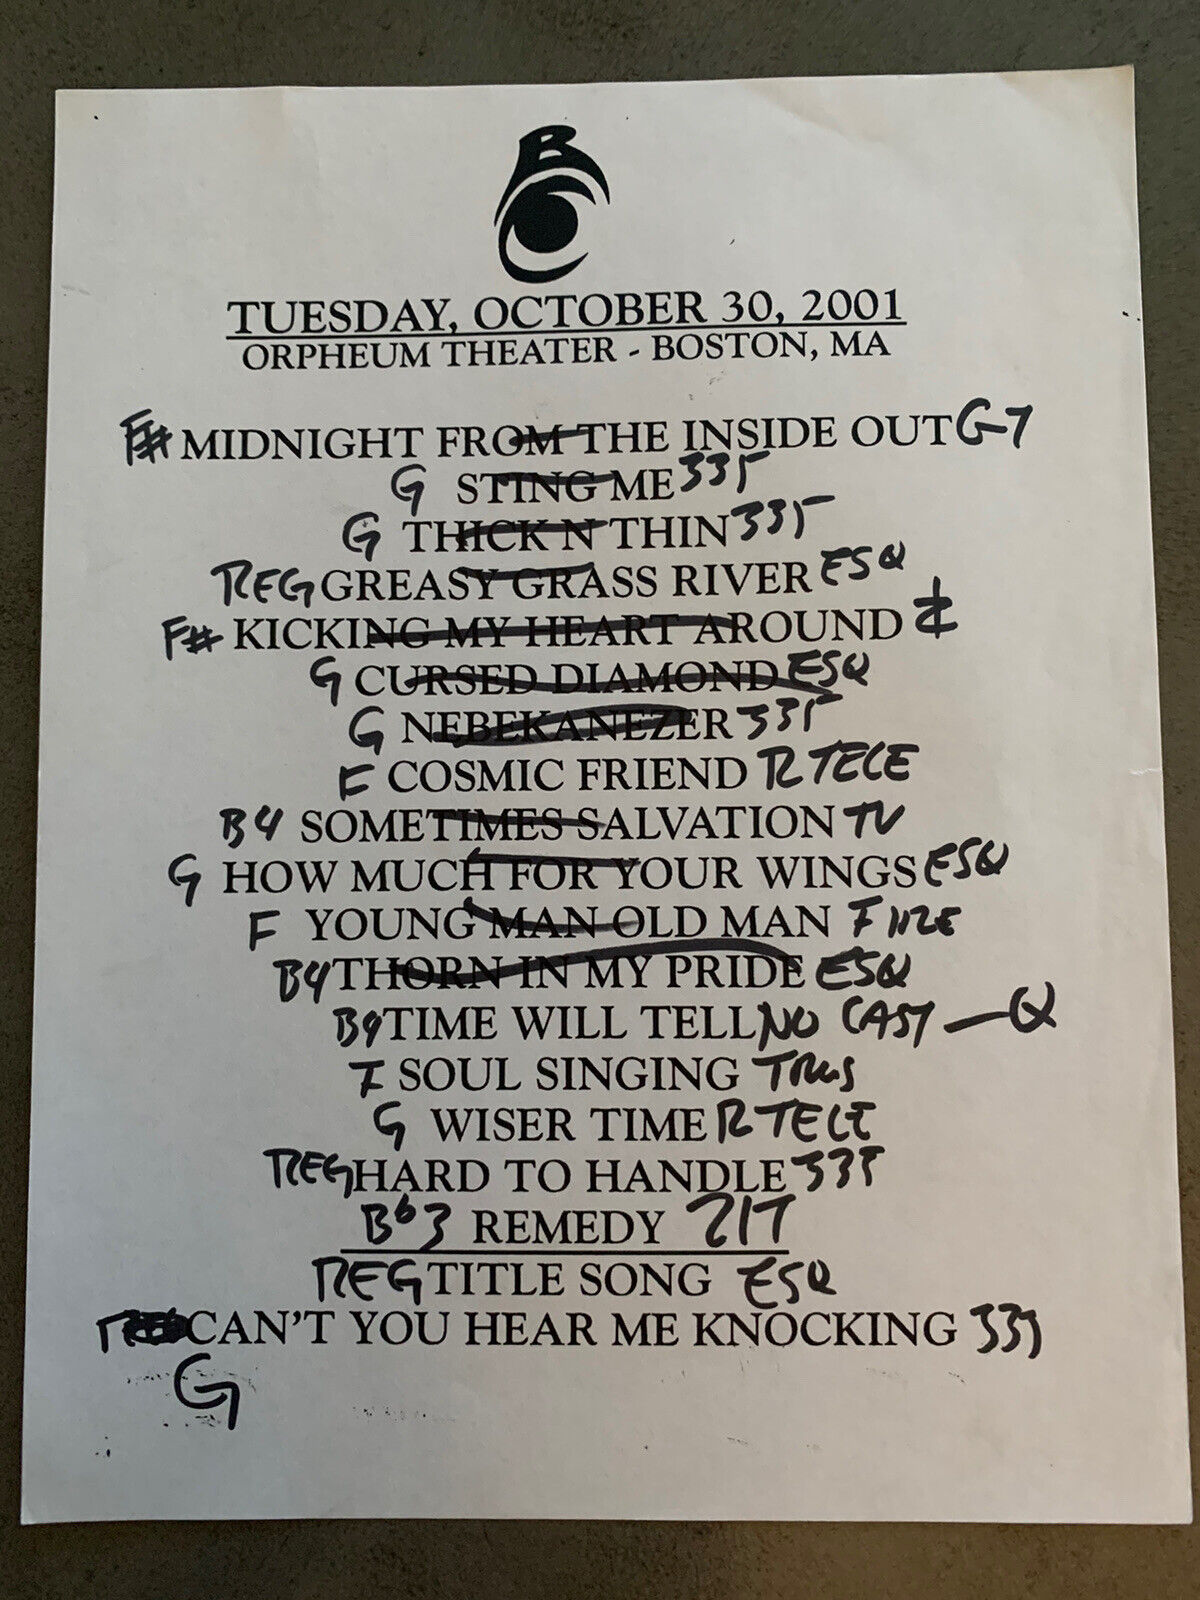 B
TUESDAY, OCTOBER 30, 2001
ORPHEUM THEATER - BOSTON, MA
F# MIDNIGHT FROM THE INSIDE OUT G-7
G STING ME 335
G THICK N THIN 335
REG GREASY GRASS RIVER ESQ
F# KICKING MY HEART AROUND
G CURSED DIAMOND ESQ
G NEBEKANEZER 335
F COSMIC FRIEND R TELE
B4 SOMETIMES SALVATION TV
G HOW MUCH FOR YOUR WINGS ESQ
F YOUNG MAN OLD MAN FIRE
B4 THORN IN MY PRIDE ESQ
B4 TIME WILL TELL NO CAST — Q
F SOUL SINGING
G WISER TIME R TELE
REG HARD TO HANDLE 335
B63 REMEDY 217
REG TITLE SONG ESQ
CAN'T YOU HEAR ME KNOCKING 335
G